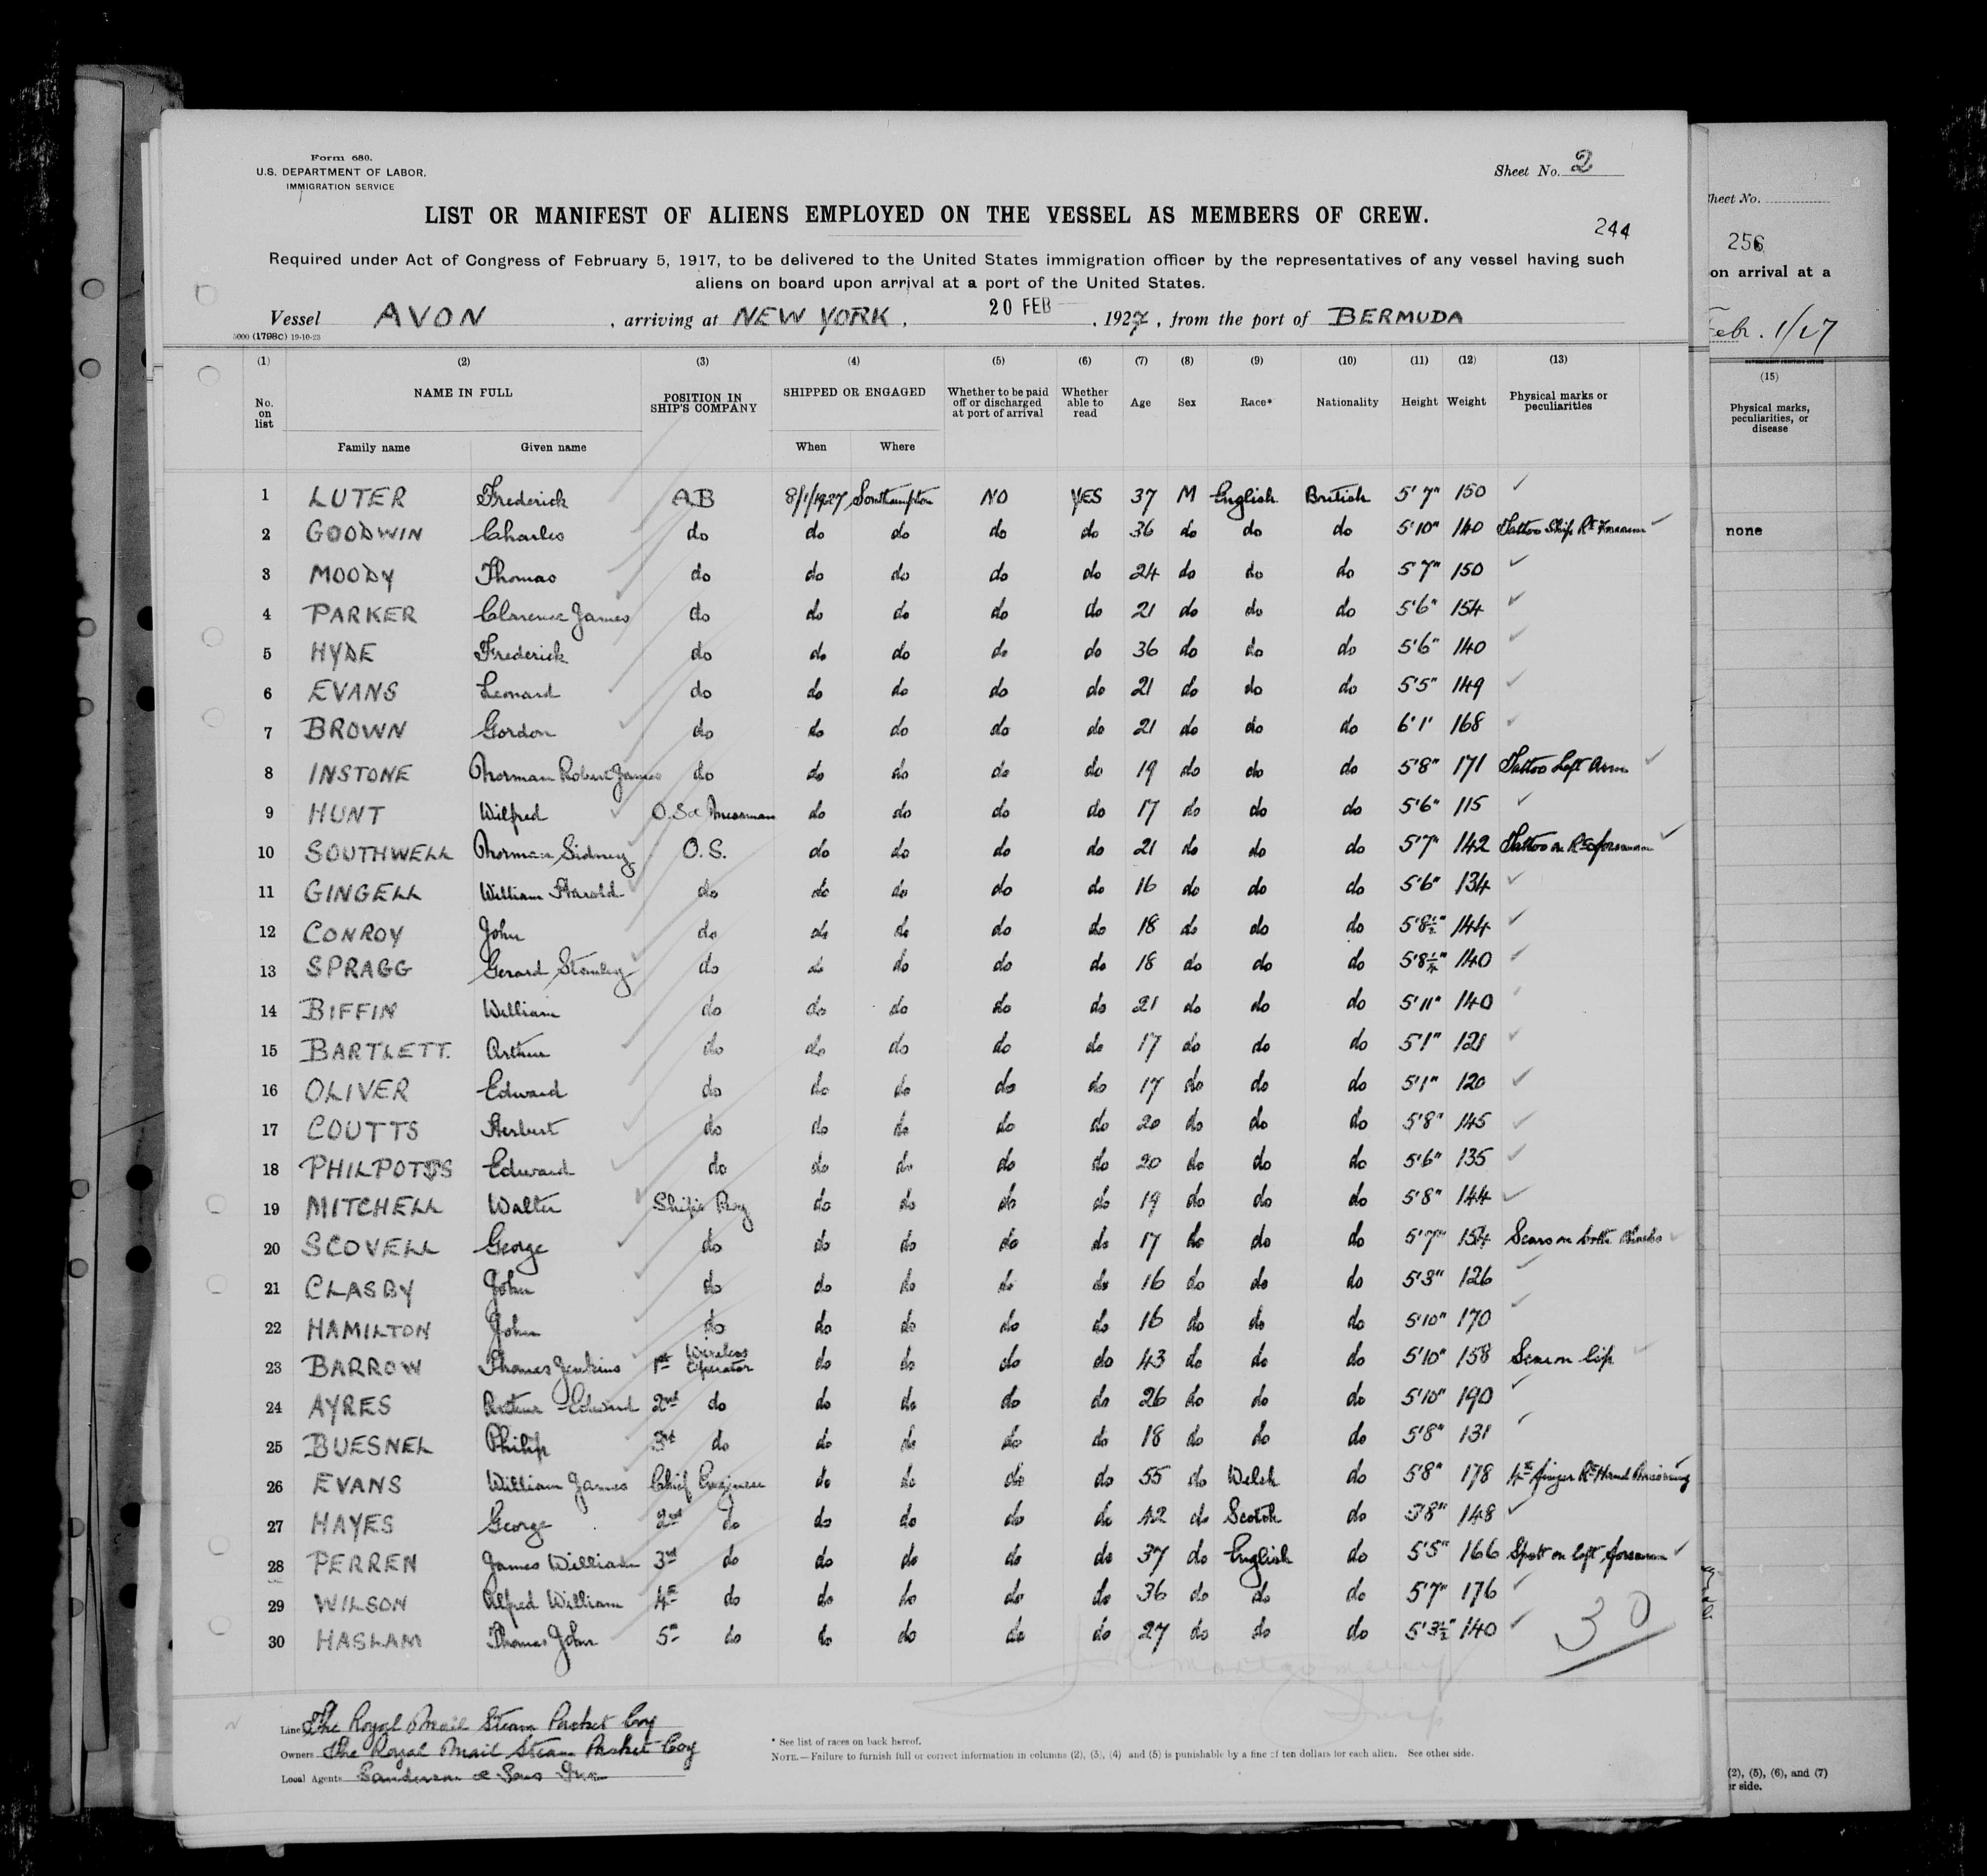 Form 680.
U.S. DEPARTMENT OF LABOR.
IMMIGRATION SERVICE
Sheet No. 2
LIST OR MANIFEST OF ALIENS EMPLOYED ON THE VESSEL AS MEMBERS OF CREW.
244
Required under Act of Congress of February 5, 1917, to be delivered to the United States immigration officer by the representatives of any vessel having such
aliens on board upon arrival at a port of the United States.
Vessel AVON, arriving at NEW YORK, 20 FEB, 1927, from the port of BERMUDA
5000 (1798C) 19-10-23
(1) (2) (3) (4) (5) (6) (7) (8) (9) (10) (11) (12) (13)
No. on list NAME IN FULL POSITION IN SHIP'S COMPANY SHIPPED OR ENGAGED Whether to be paid off or discharged at port of arrival Whether able to read Age Sex Race* Nationality Height Weight Physical marks or peculiarities
Family name Given name When Where
1 LUTER Frederick AB 8/1/1927 Southampton NO YES 37 M English British 5'7" 150
2 GOODWIN Charles do do do do do 36 do do do 5'10" 140 Tattoo Ship Rt Forearm
3 MOODY Thomas do do do do do 24 do do do 5'7" 150
4 PARKER Clarence James do do do do do 21 do do do 5'6" 154
5 HYDE Frederick do do do do do 36 do do do 5'6" 140
6 EVANS Leonard do do do do do 21 do do do 5'5" 149
7 BROWN Gordon do do do do do 21 do do do 6'1' 168
8 INSTONE Norman Robert James do do do do do 19 do do do 5'8" 171 Tattoo Left Arm
9 HUNT Wilfred O.S. do do do do 17 do do do 5'6" 115
10 SOUTHWELL Norman Sidney O.S. do do do do 21 do do do 5'7" 142 Tattoo on Rt forearm
11 GINGELL William Harold do do do do do 16 do do do 5'6" 134
12 CONROY John do do do do do 18 do do do 5'8½" 144
13 SPRAGG Gerard Stanley do do do do do 18 do do do 5'8¼" 140
14 BIFFIN William do do do do do 21 do do do 5'11" 140
15 BARTLETT. Arthur do do do do do 17 do do do 5'1" 121
16 OLIVER Edward do do do do do 17 do do do 5'1" 120
17 COUTTS Herbert do do do do do 20 do do do 5'8" 145
18 PHILPOTTS Edward do do do do do 20 do do do 5'6" 135
19 MITCHELL Walter Ship's Boy do do do do 19 do do do 5'8" 144
20 SCOVELL George do do do do do 17 do do do 5'7" 154 Scars on both
21 CLASBY John do do do do do 16 do do do 5'3" 126
22 HAMILTON John do do do do do 16 do do do 5'10" 170
23 BARROW Thomas Jenkins 1st Wireless Operator do do do do 43 do do do 5'10" 158 Scar on lip
24 AYRES Arthur Edward 2nd do do do do do 26 do do do 5'10" 190
25 BUESNEL Philip 3rd do do do do do 18 do do do 5'8" 131
26 EVANS William James Chief Engineer do do do do 55 do Welsh do 5'8" 178 4th finger Rt Hand Missing
27 HAYES George 2nd do do do do do 42 do Scotch do 5'8" 148
28 PERREN James William 3rd do do do do do 37 do English do 5'5" 166 Spot on left forearm
29 WILSON Alfred William 4th do do do do do 36 do do do 5'7" 176
30 HASLAM Thomas John 5th do do do do do 27 do do do 5'3½" 140
30
Montgomery
Line The Royal Mail Steam Packet Coy
Owners The Royal Mail Steam Packet Coy
Local Agents Sanderson & Sons Inc
* See list of races on back hereof.
NOTE.—Failure to furnish full or correct information in columns (2), (3), (4) and (5) is punishable by a fine of ten dollars for each alien. See other side.
Sheet No.
256
on arrival at a
Febr. 1/27
(15)
Physical marks, peculiarities, or disease
none
(2), (5), (6), and (7)
er side.